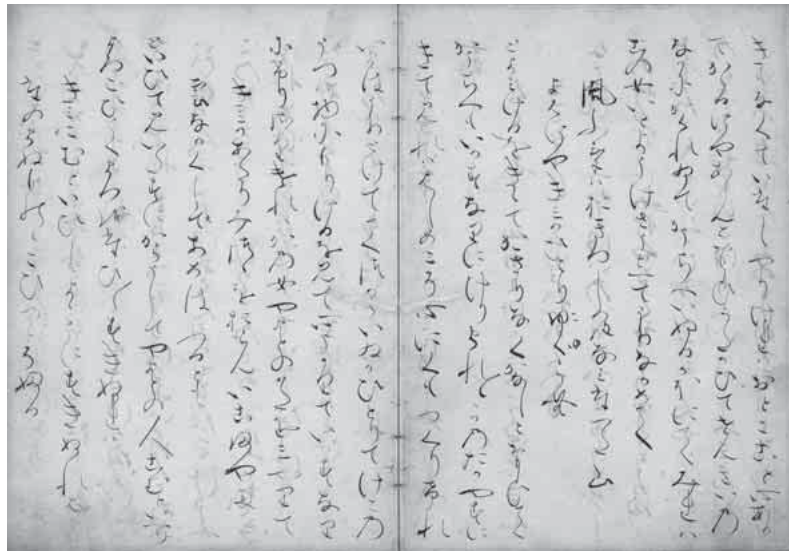 てかゝるにやあらんと思ひうたかひてせんさいの
なかにかくれゐてかうちへいぬるかほにてみれは
この女いとようけさうしてうちなかめて
風ふけはおきつしらなみたつた山
よはにやきみかひとりゆくらむ
とよみけるをきゝてかきりなくかなしとおもひて
かうちへもいかすなりにけりまれ／＼かのたかやすに
きてみれははしめこそ心にくもつくりけれ
いまはうちとけててつからいゐかひとりてけこの
うつは物にもりけるをみて心うかりていかすなり
にけりさりけれはかの女やまとのかたをみやりて
きみかあたりみつゝをおらんいこま山
雲なかくしそあめはふるとも
といひてみいたすにからうしてやまと人こむといへり
よろこひてまつにたひ／＼すきぬれは
きみこむといひしよことにすきぬれは
たのまぬものゝこひつゝそぬる